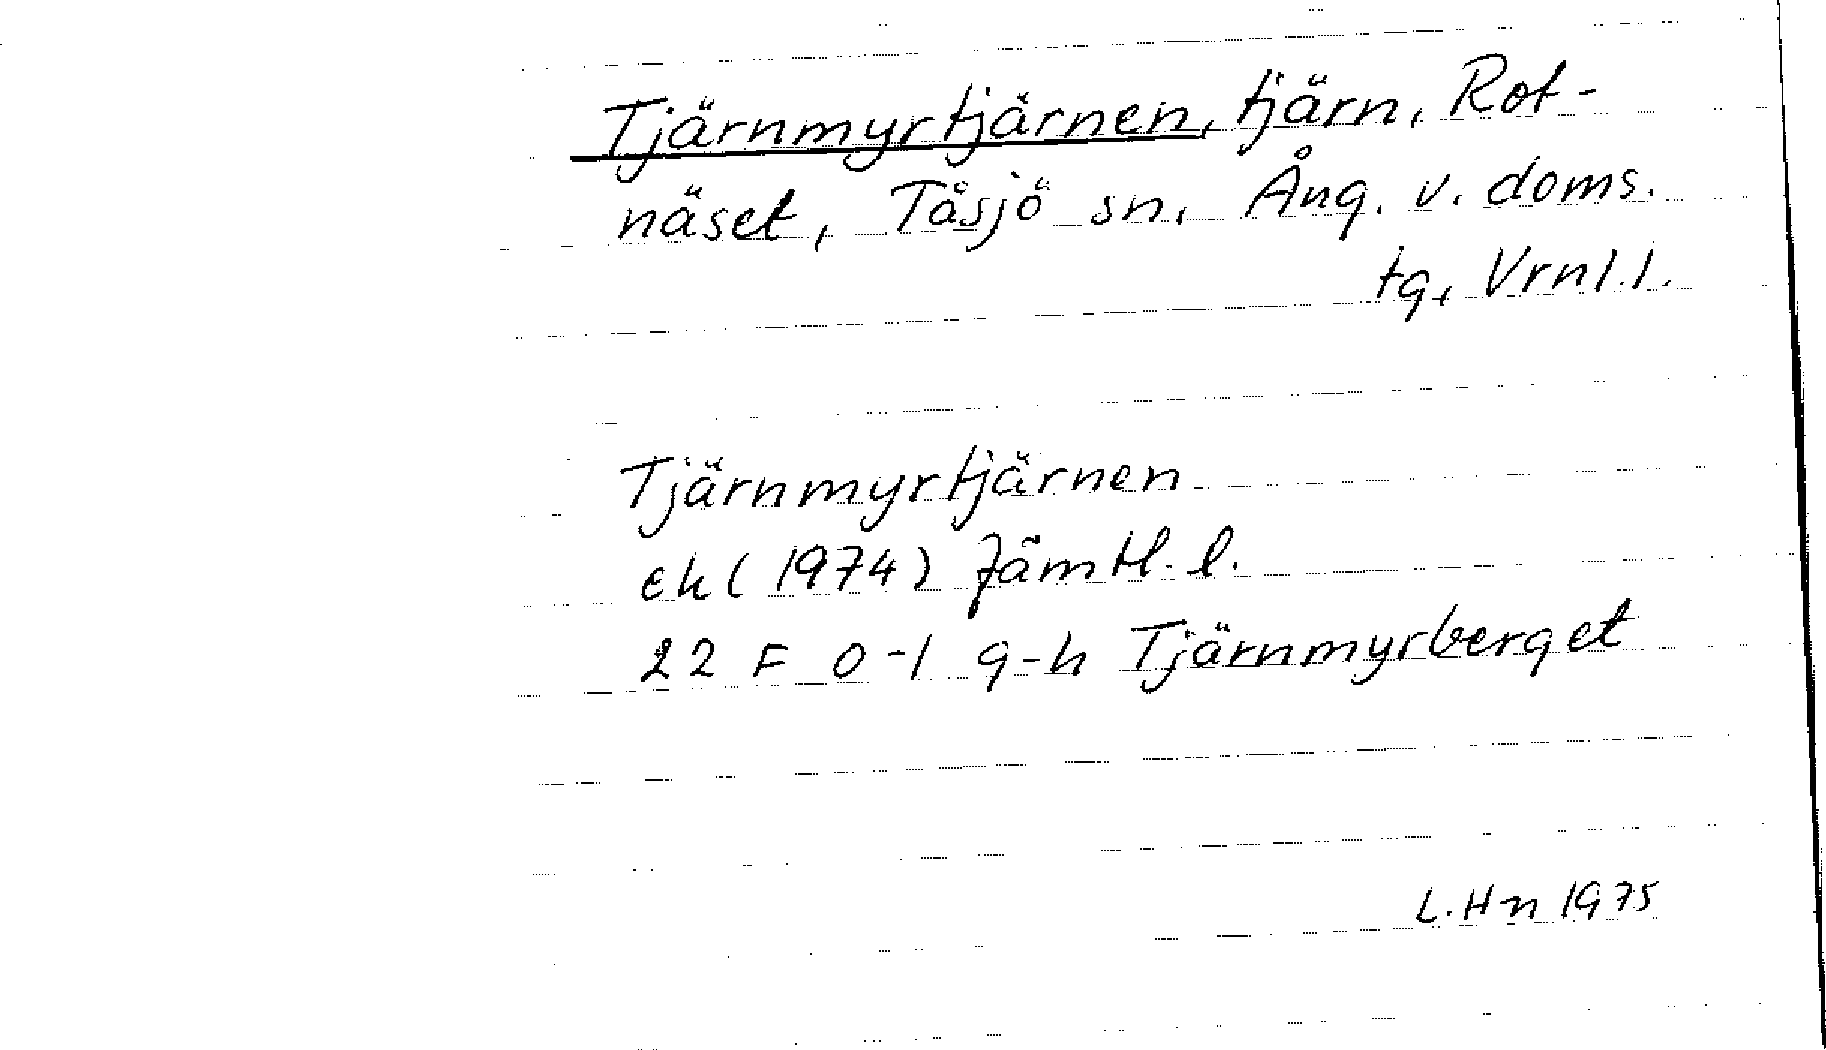 Tjärnmyrtjärnen, tjärn, Rot-
näset, Tåsjö sn, Ång. v. doms.
tg, Vrnl.l.
Tjärnmyrtjärnen
ek (1974) Jämtl. l.
22 F 0-1 g-h Tjärnmyrberget
L. Hn 1975